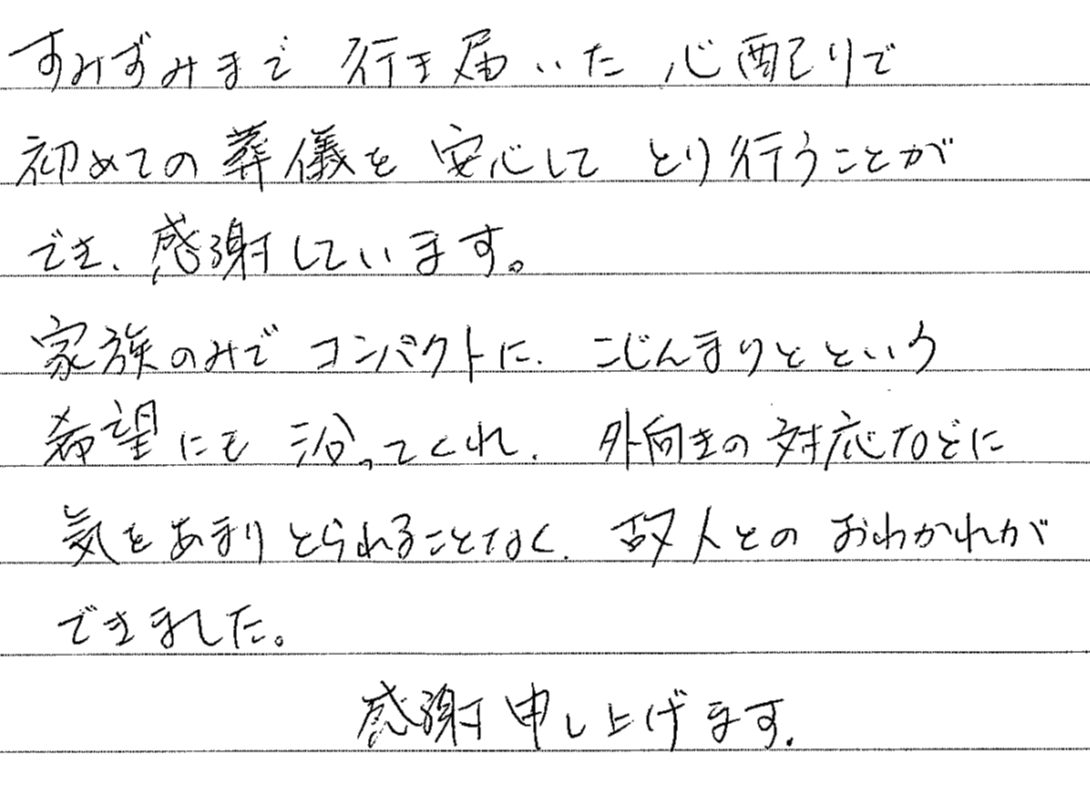 すみずみまで 行き届いた 心配りで
初めての葬儀を 安心して とり行うことが
でき、感謝しています。
家族のみで コンパクトに、こじんまりとという
希望にも 沿ってくれ、外向きの対応などに
気をあまりとられることなく、故人とのおわかれが
できました。
感謝申し上げます。